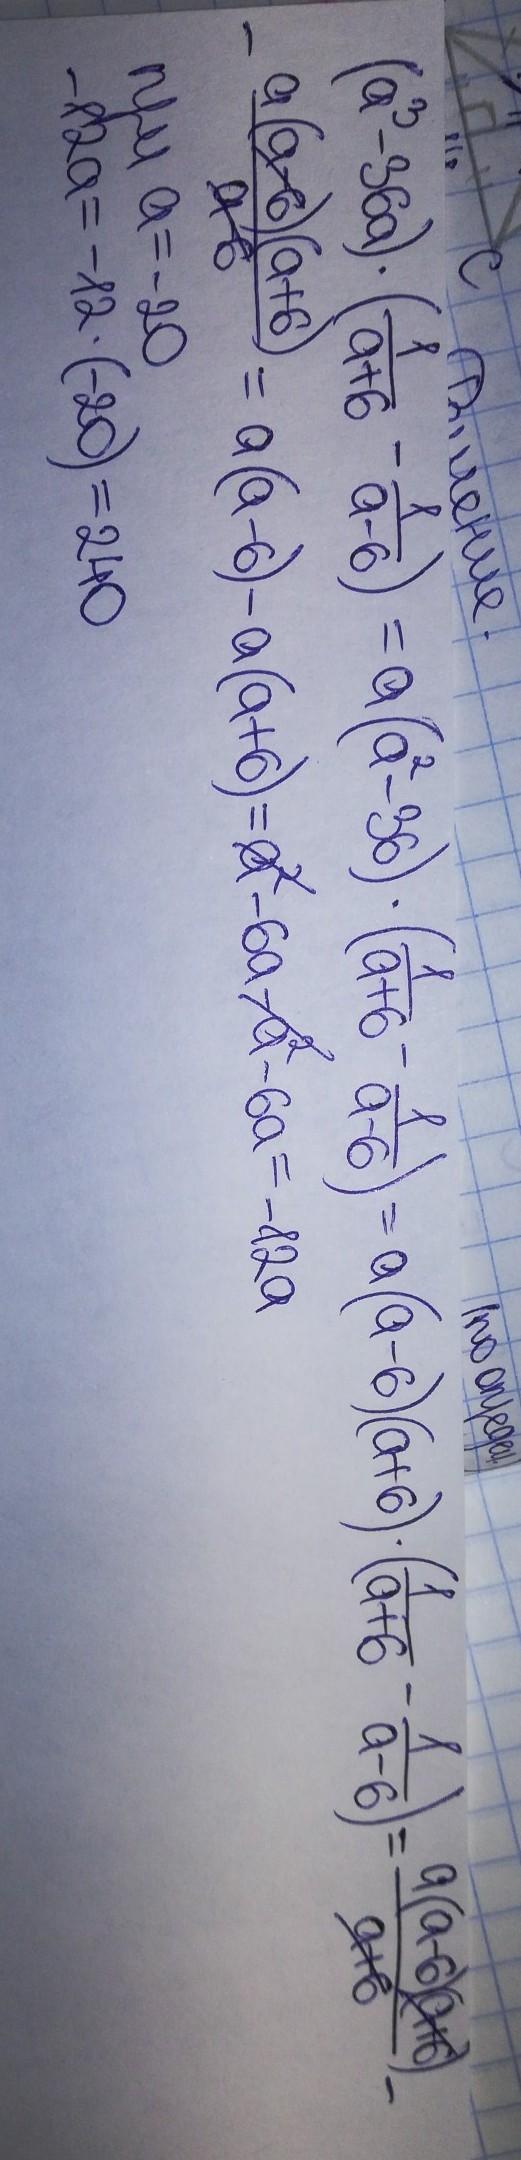 C Решение.
(a³-36a)·(1/(a+6) - 1/(a-6)) = a(a²-36)·(1/(a+6) - 1/(a-6)) = a(a-6)(a+6)·(1/(a+6) - 1/(a-6)) = a(a-6)(a+6)/(a+6) -
- a(a-6)(a+6)/(a-6) = a(a-6)-a(a+6)=a²-6a-a²-6a=-12a
при a=-20
-12a=-12·(-20)=240